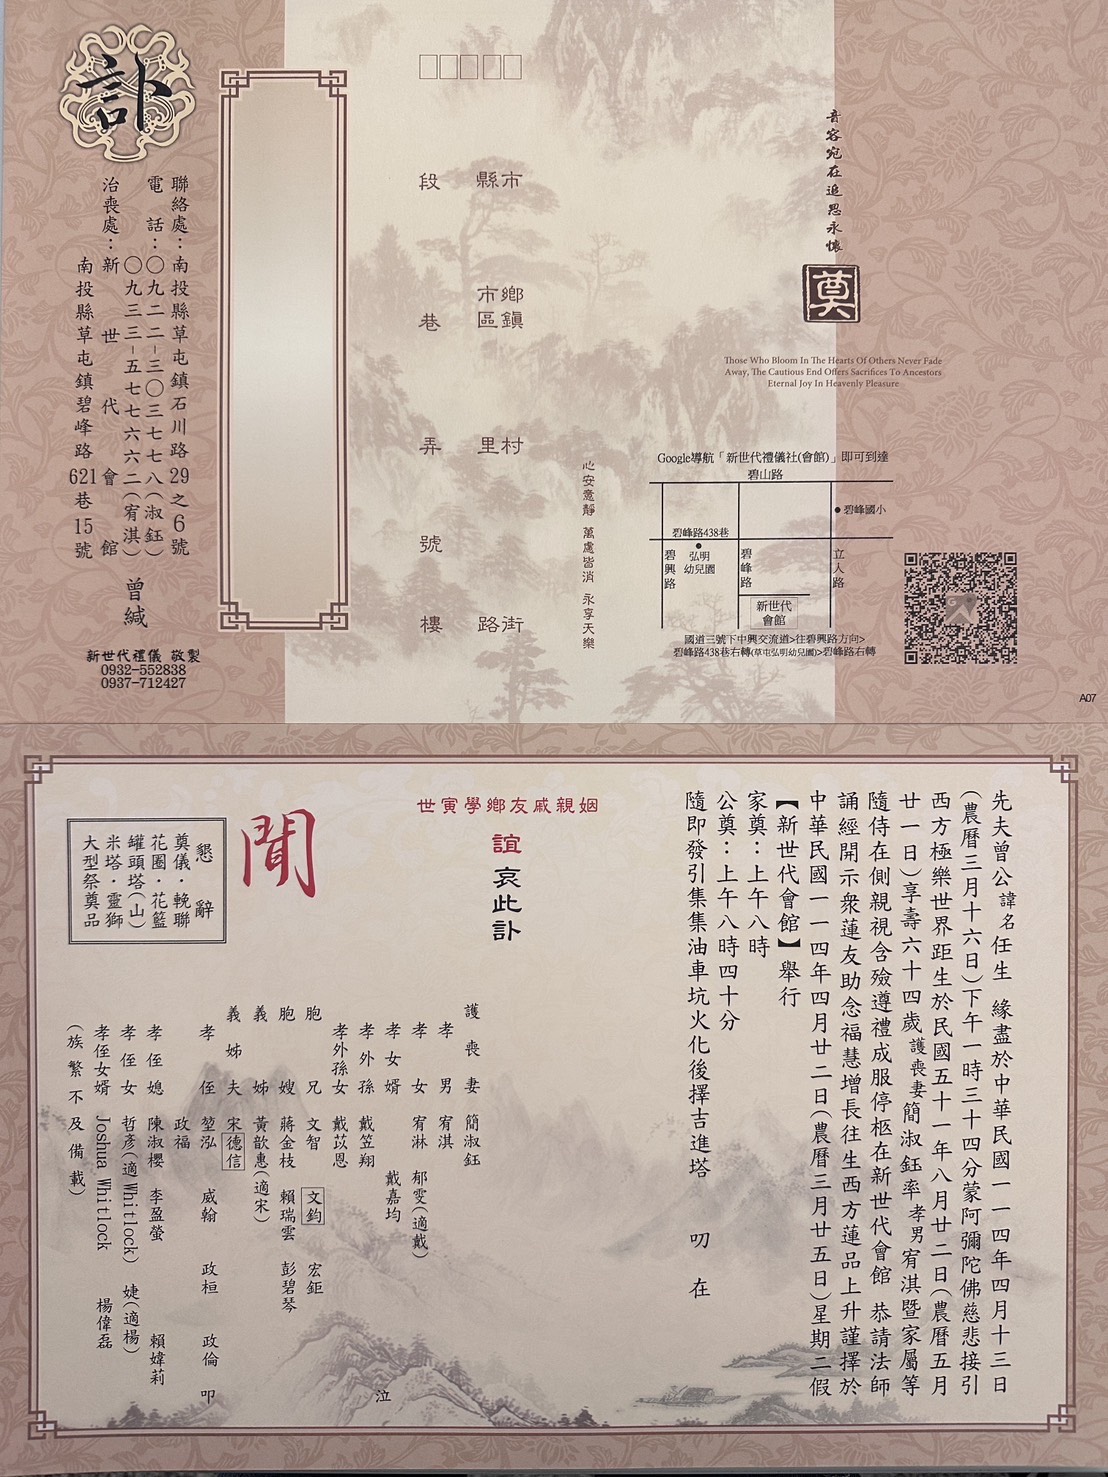 訃
聯絡處：南投縣草屯鎮石川路29之6號
電話：〇九二二－三〇三七七八(淑鈺)
〇九三三－五七七六六二(宥淇)
治喪處：新世代會館
南投縣草屯鎮碧峰路621巷15號
曾緘
新世代禮儀 敬製
0932-552838
0937-712427
縣市
鄉鎮
市區
村里
路街
段
巷
弄
號
樓
心安意靜 萬慮皆消 永享天樂
音容宛在追思永懷
奠
Those Who Bloom In The Hearts Of Others Never Fade
Away, The Cautious End Offers Sacrifices To Ancestors
Eternal Joy In Heavenly Pleasure
Google導航「新世代禮儀社(會館)」即可到達
碧山路
碧峰國小
碧峰路438巷
弘明
幼兒園
碧興路
碧峰路
立人路
新世代
會館
國道三號下中興交流道>往碧興路方向>
碧峰路438巷右轉(草屯弘明幼兒園)>碧峰路右轉
A07
先夫曾公諱名任生 緣盡於中華民國一一四年四月十三日
(農曆三月十六日)下午一時三十四分蒙阿彌陀佛慈悲接引
西方極樂世界距生於民國五十一年八月廿二日(農曆五月
廿一日)享壽六十四歲護喪妻簡淑鈺率孝男宥淇暨家屬等
隨侍在側親視含殮遵禮成服停柩在新世代會館 恭請法師
誦經開示眾蓮友助念福慧增長往生西方蓮品上升謹擇於
中華民國一一四年四月廿二日(農曆三月廿五日)星期二假
【新世代會館】舉行
家奠：上午八時
公奠：上午八時四十分
隨即發引集集油車坑火化後擇吉進塔 叨在
世寅學鄉友戚親姻
誼哀此訃
聞
護喪妻 簡淑鈺
孝男 宥淇
孝女 宥淋 郁雯(適戴)
孝女婿 戴嘉均
孝外孫 戴笠翔
孝外孫女 戴苡恩
胞兄 文智 文鈞 宏鉅
胞嫂 蔣金枝 賴瑞雲 彭碧琴
義姊 黃歆惠(適宋)
義姊夫 宋德信
孝侄 堃泓 威翰 政桓 政倫
政福
孝侄媳 陳淑櫻 李盈螢 賴媁莉
孝侄女 哲彥(適Whitlock) 婕(適楊)
孝侄女婿 Joshua Whitlock 楊偉磊
(族繁不及備載)
泣
叩
懇辭
奠儀・輓聯
花圈・花籃
罐頭塔(山)
米塔・靈獅
大型祭奠品